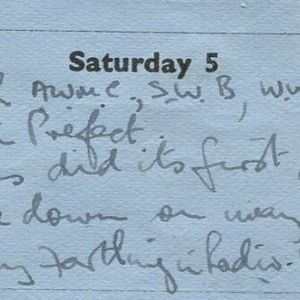 Saturday 5
AWMC, S.W.B, W.W
Prefect.
did its first
down on way
Farthing in Radio.